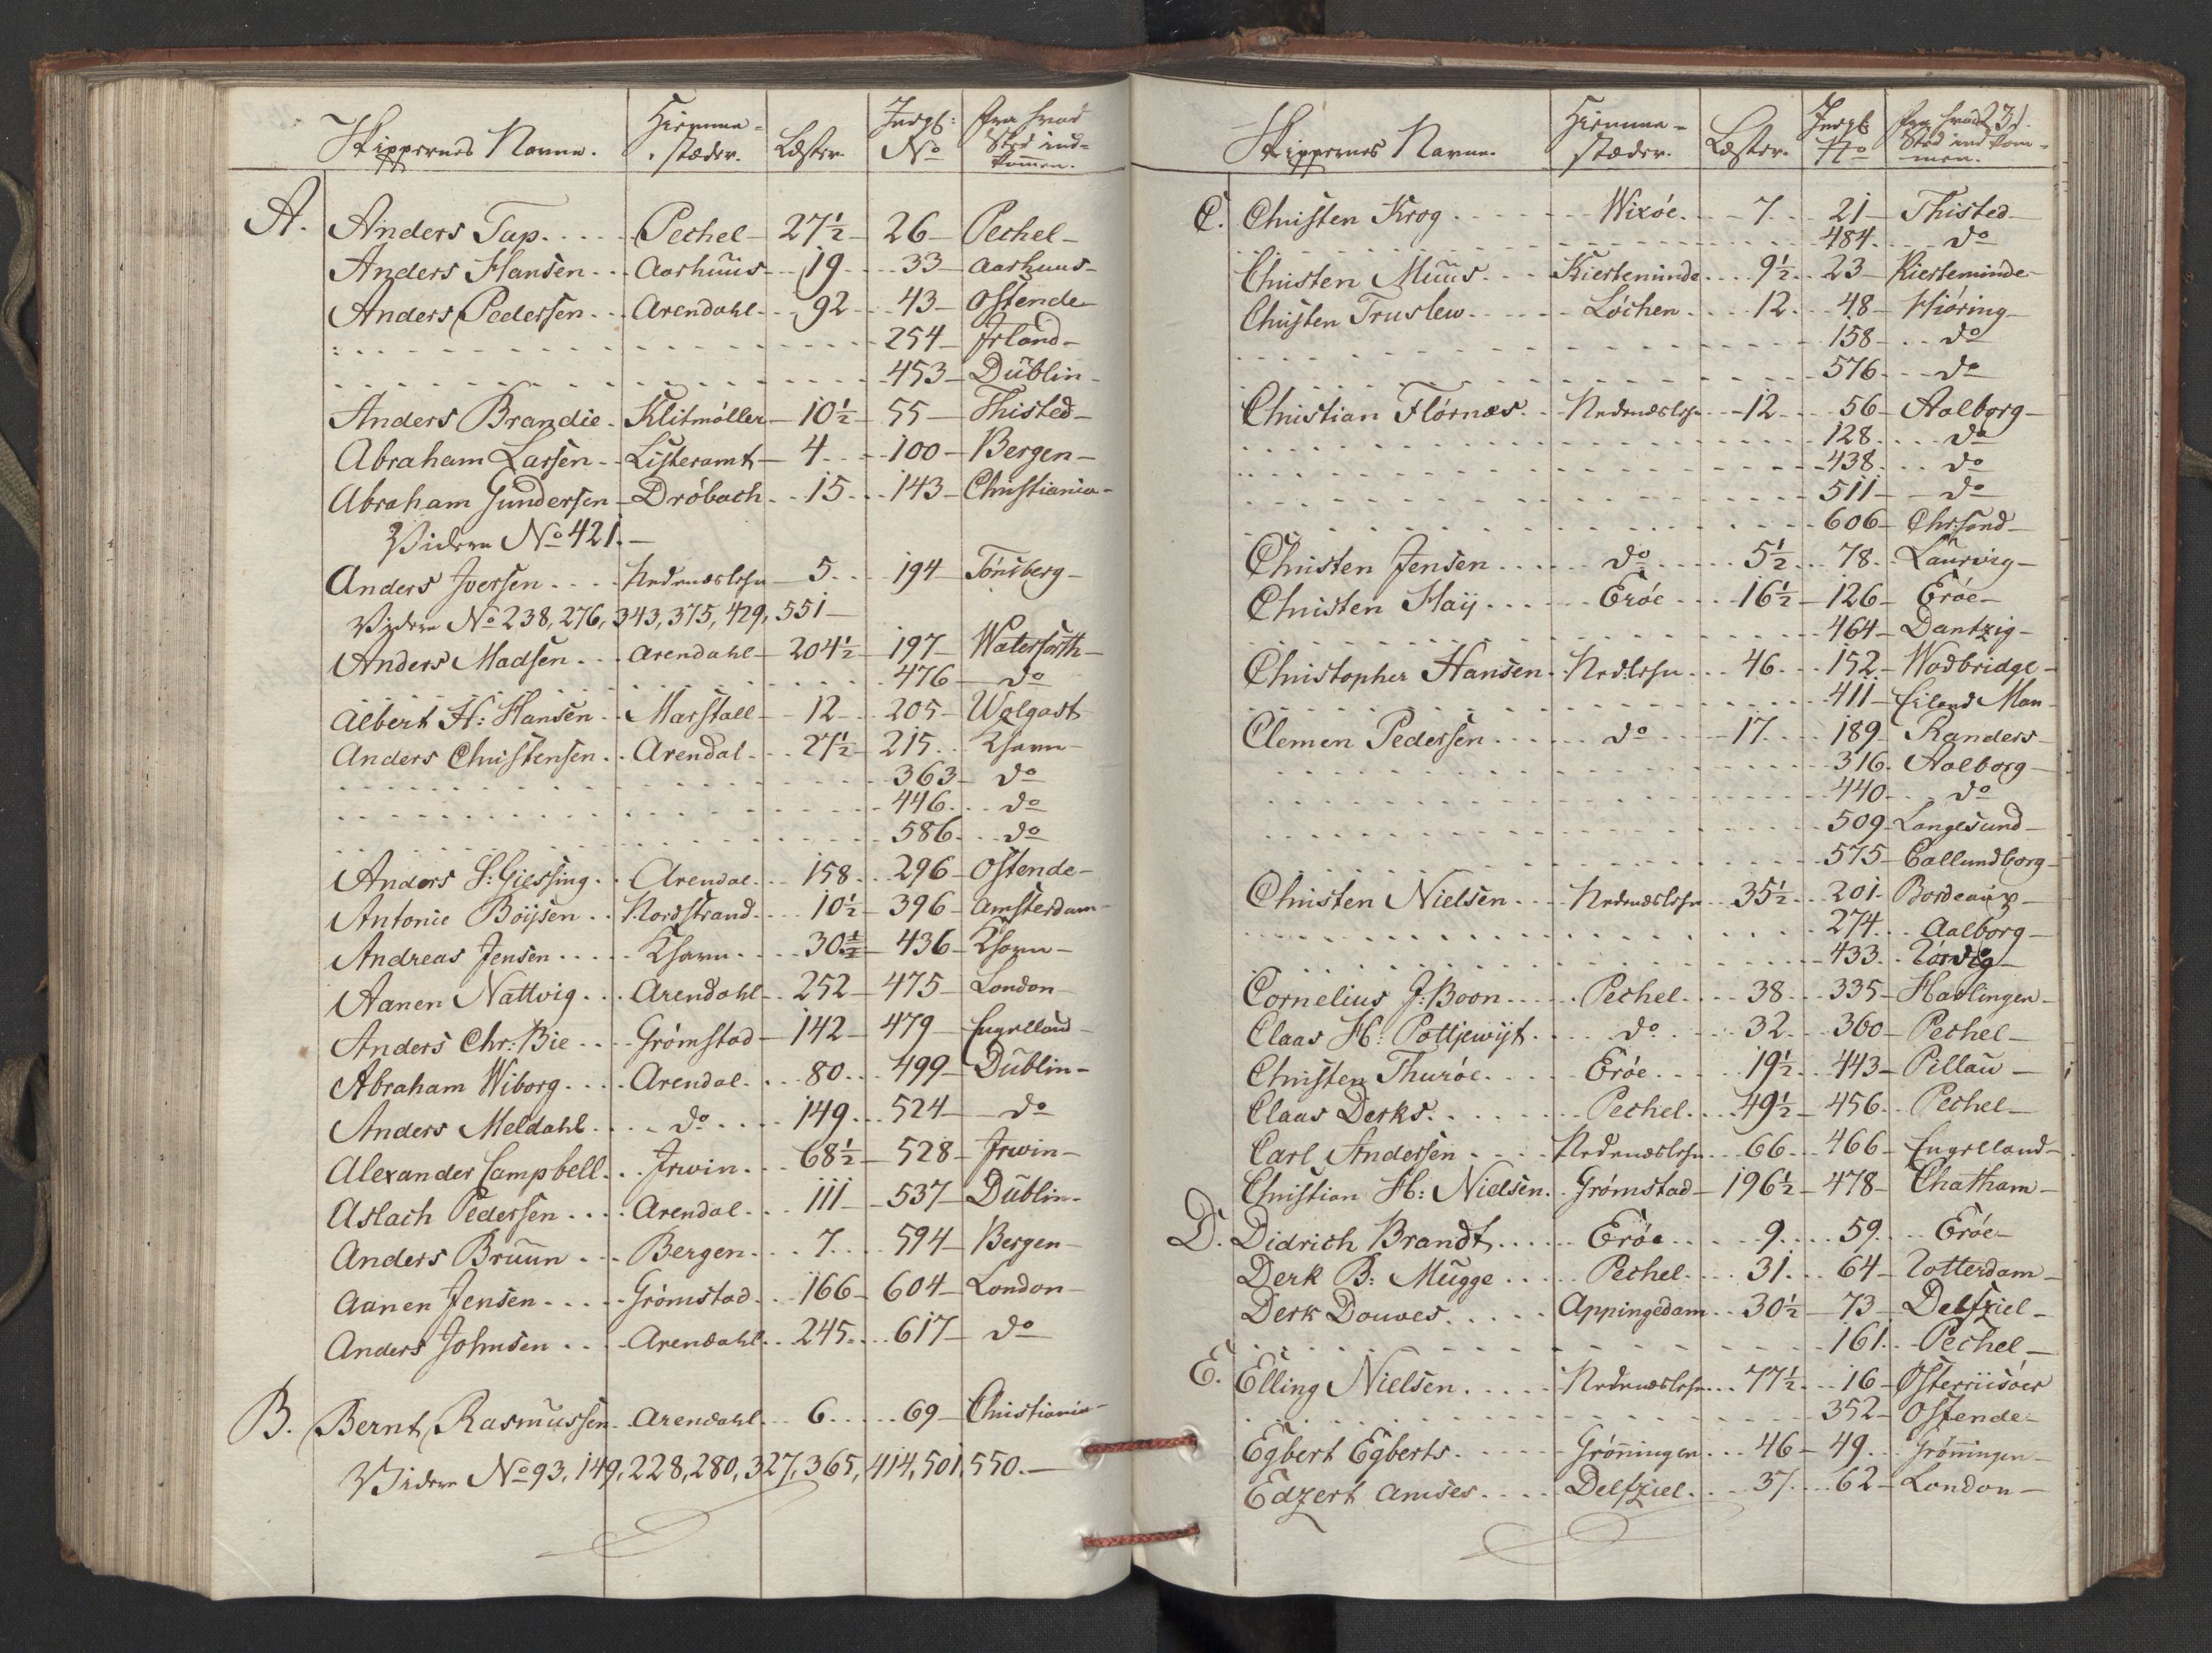 Skippernes Navne. Hiemme- stæder. Læster. Indgb: No fra hvad Sted ind- kommen.
A. Anders Tap. Pechel 27½ 26 Pechel
Anders Hansen Aarhuus 19 33 Aarhuus
Anders Pedersen Arendahl 92 43 Ostende
254 Irland
453 Dublin
Anders Brandie Klitmøller 10½ 55 Thisted
Abraham Larsen Listeramt 4 100 Bergen
Abraham Gundersen Drøbach 15 143 Christiania
Videre No 421.
Anders Iversen Nedenæslehn 5 194 Tønsberg
Videre No 238, 276, 343, 375, 429, 551
Anders Madsen Arendahl 204½ 197 Waterforth
476 do
Albert H: Hansen Marstall 12 205 Wolgast
Anders Christensen Arendal 27½ 215 Khavn
363 do
446 do
586 do
Anders S: Giessing Arendal 158 296 Ostende
Antonie Böijsen Nordstrand 10½ 396 Amsterdam
Andreas Jensen Khavn 30½ 436 Khavn
Aanen Nattvig Arendahl 252 475 London
Anders Chr: Bie Grømstad 142 479 Engelland
Abraham Wiborg Arendal 80 499 Dublin
Anders Meldahl do 149 524 do
Alexander Campbell Irwin 68½ 528 Irwin
Aslach Pedersen Arendal 111 537 Dublin
Anders Bruun Bergen 7 594 Bergen
Aanen Jensen Grømstad 166 604 London
Anders Johnsen Arendahl 245 617 do
B. Bernt Rasmussen Arendahl 6 69 Christiania
Videre No 93, 149, 228, 280, 327, 365, 414, 501, 550.
231.
Skippernes Navne. Hiemme- stæder. Læster. Indgb No fra hvad Sted ind kom- men.
C. Christen Krog Wixøe 7 21 Thisted
484 do
Christen Muus Kierteminde 9½ 23 Kierteminde
Christen Truslew Løchen 12 48 Hiøring
158 do
576 do
Christian Flørnæs Nedenæslehn 12 56 Aalborg
128 do
438 do
511 do
606 Chrsand
Christen Jensen do 5½ 78 Laurvig
Christen Haij Erøe 16½ 126 Erøe
464 Dantzig
Christopher Hansen Ned:lehn 46 152 Wodbridge
411 Eiland Man
Clemen Pedersen do 17 189 Randers
316 Aalborg
440 do
509 Langesund
575 Callundborg
Christen Nielsen Nedenæslehn 35½ 201 Bordeaux
274 Aalborg
433 Rørvig
Cornelius J: Boon Pechel 38 335 Harlingen
Claas H: Pottjewijt do 32 360 Pechel
Christen Thurøe Erøe 19½ 443 Pillau
Claas Derks Pechel 49½ 456 Pechel
Carl Andersen Nedenæslehn 66 466 Engelland
Christian H: Nielsen Grømstad 196½ 478 Chatham
D. Didrich Brandt Erøe 9 59 Erøe
Derk B: Mugge Pechel 31 64 Rotterdam
Derk Douwes Appingedam 30½ 73 Delfziel
161 Pechel
E. Elling Nielsen Nedenæslehn 77½ 16 Østerriisøer
352 Ostende
Egbert Egberts Grønningen 46 49 Grønningen
Edzert Amses Delfziel 37 62 London